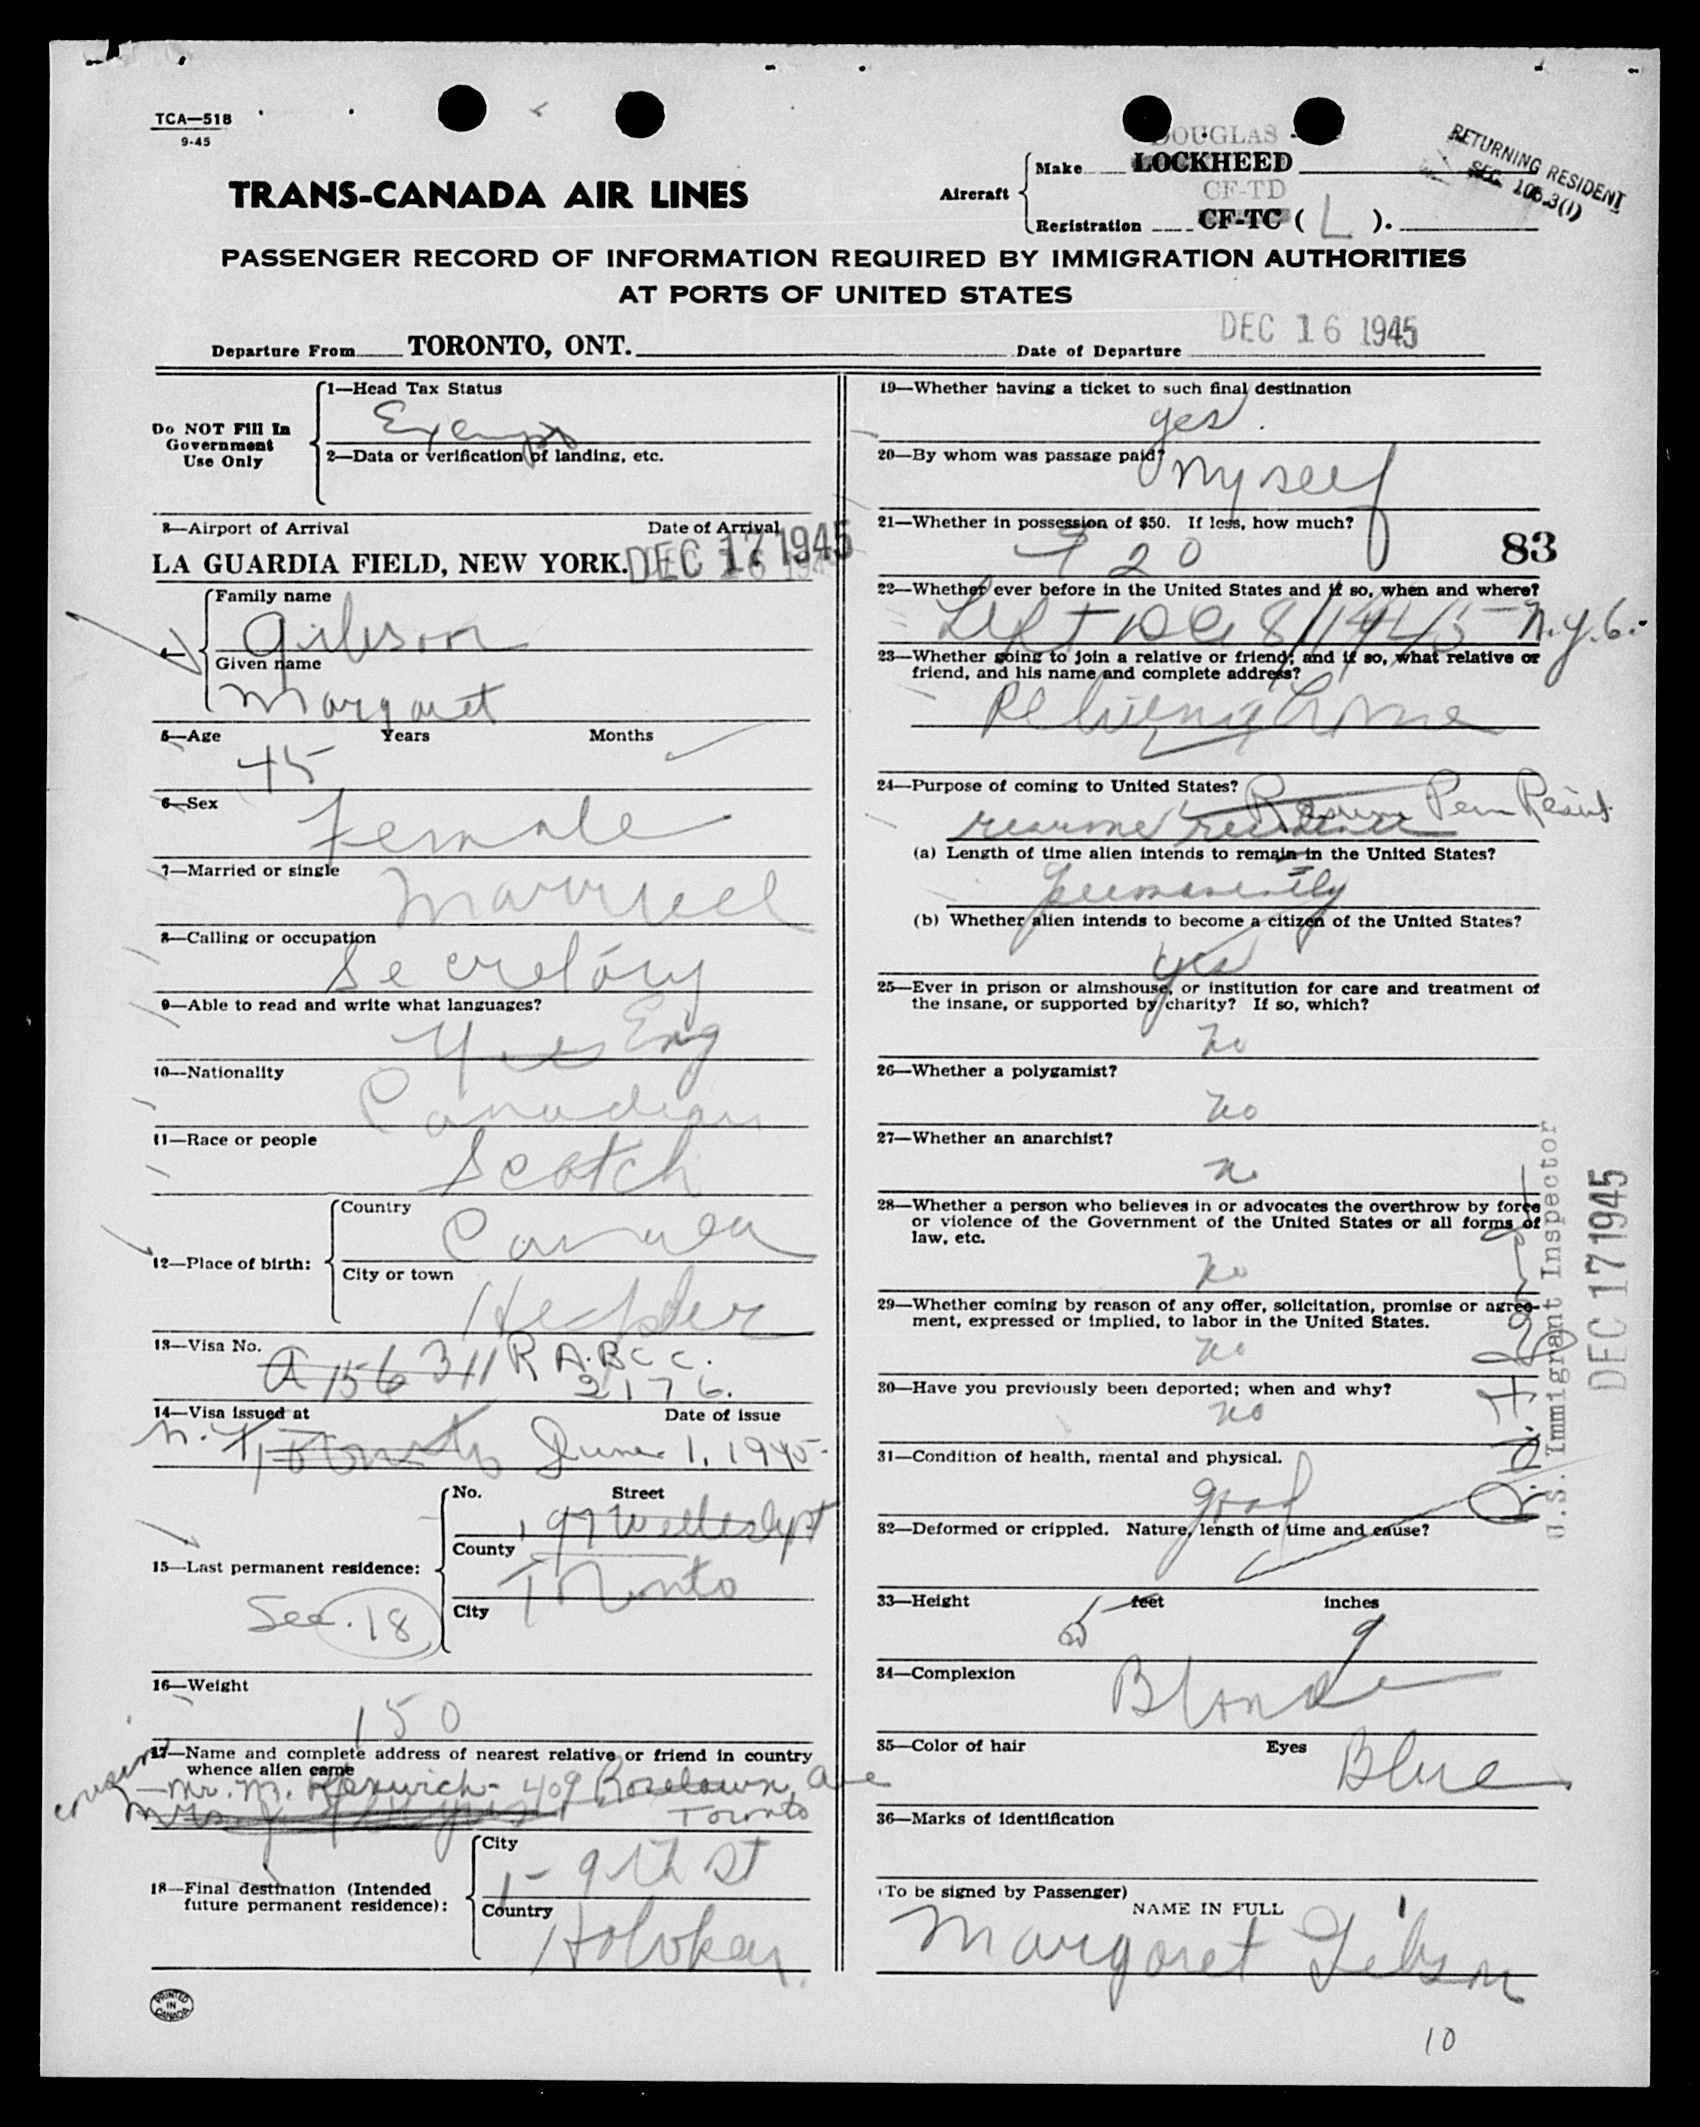 TCA—518
9-45
DOUGLAS
Aircraft
Make LOCKHEED
CF-TD
Registration CF-TC ( L ).
RETURNING RESIDENT
SEC. 105.3(1)
TRANS-CANADA AIR LINES
PASSENGER RECORD OF INFORMATION REQUIRED BY IMMIGRATION AUTHORITIES
AT PORTS OF UNITED STATES
Departure From TORONTO, ONT.
Date of Departure DEC 16 1945
Do NOT Fill In
Government
Use Only
1—Head Tax Status
Exempt
2—Data or verification of landing, etc.
3—Airport of Arrival Date of Arrival
LA GUARDIA FIELD, NEW YORK. DEC 17 1945
4—
Family name
Gibson
Given name
Margaret
5—Age Years Months
45
6—Sex
Female
7—Married or single
Married
8—Calling or occupation
Secretary
9—Able to read and write what languages?
Yes Eng
10—Nationality
Canadian
11—Race or people
Scotch
12—Place of birth:
Country
Canada
City or town
Hespler
13—Visa No.
A 156311 R A.B.C C.
2176.
14—Visa issued at Date of issue
N.Y. Toronto June 1, 1945.
15—Last permanent residence:
No. Street
197 Wellesly St
County
Toronto
City
See. 18
16—Weight
150
17—Name and complete address of nearest relative or friend in country
whence alien came
cousin
Mr. M. Renwick - 409 Roselawn Ave
Toronto
18—Final destination (Intended
future permanent residence):
City
1 - 9th St
Country
Hoboken.
PRINTED
IN
CANADA
19—Whether having a ticket to such final destination
yes.
20—By whom was passage paid?
myself
21—Whether in possession of $50. If less, how much?
20
83
22—Whether ever before in the United States and if so, when and where?
Left Dec 8/1945 N.Y.C.
23—Whether going to join a relative or friend; and if so, what relative or
friend, and his name and complete address?
Returning home
24—Purpose of coming to United States?
resume residence
Resum Perm Resid.
(a) Length of time alien intends to remain in the United States?
Permanently
(b) Whether alien intends to become a citizen of the United States?
yes
25—Ever in prison or almshouse, or institution for care and treatment of
the insane, or supported by charity? If so, which?
no
26—Whether a polygamist?
no
27—Whether an anarchist?
no
28—Whether a person who believes in or advocates the overthrow by force
or violence of the Government of the United States or all forms of
law, etc.
no
29—Whether coming by reason of any offer, solicitation, promise or agree-
ment, expressed or implied, to labor in the United States.
no
30—Have you previously been deported; when and why?
no
31—Condition of health, mental and physical.
good
32—Deformed or crippled. Nature, length of time and cause?
33—Height feet inches
5 9
34—Complexion
Blonde
35—Color of hair Eyes
Blue
36—Marks of identification
(To be signed by Passenger)
NAME IN FULL
Margaret Gibson
U.S. Immigrant Inspector
DEC 17 1945
10